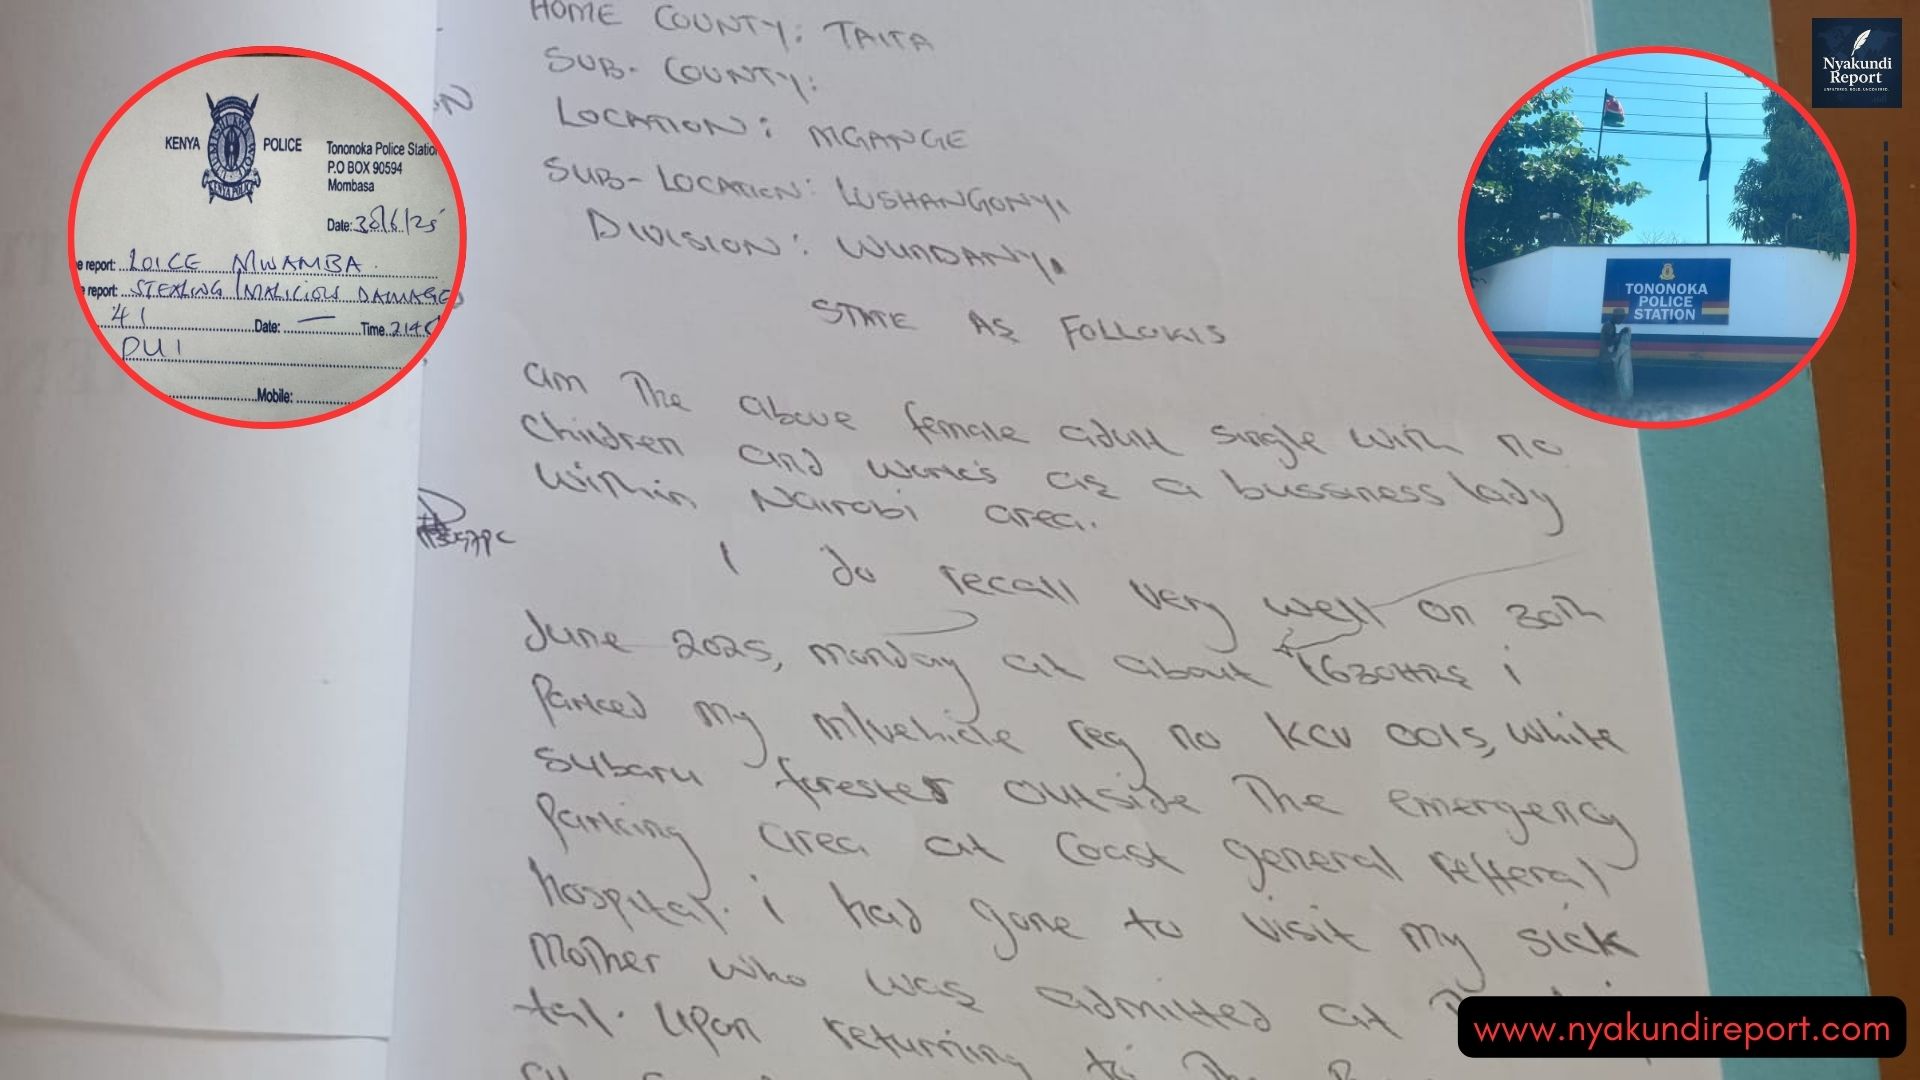 HOME COUNTY: TAITA
SUB-COUNTY:
LOCATION: MGANGE
SUB-LOCATION: LUSHANGONYI
DIVISION: WUNDANYI
STATE AS FOLLOWS
am The above female adult single with no
children and works as a bussiness lady
within Nairobi area.
I do recall very well on 30th
June 2025, monday at about 1630HRS i
Parked my m/vehicle reg no KCV 001S, white
Subaru forester outside The emergency
Parking area at Coast general refferal
hospital. i had gone to visit my sick
mother who was admitted at
tal. Upon returning to The
KENYA POLICE
Tononoka Police Statio
P.O BOX 90594
Mombasa
Date: 30/6/25
e report: LOICE MWAMBA
report: STEALING/MALICIOUS DAMAGED
41 Date: Time 214
DUI
Mobile:
TONONOKA
POLICE
STATION
Nyakundi
Report
UNFILTERED. BOLD. UNCOVERED.
www.nyakundireport.com